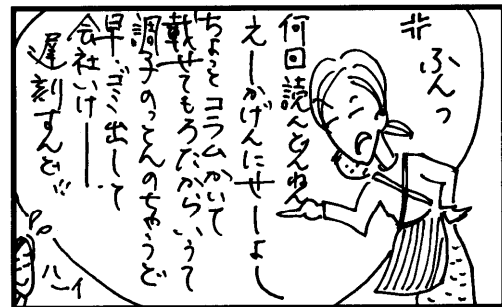 ふんっ
何回読んどんねん
えーかげんにせーよー
ちょっとコラムかいて
載せてもろたからいうて
調子のっとんのちゃうど
早・ゴミ出して
会社いけー
遅刻すんど!!
ハーイ